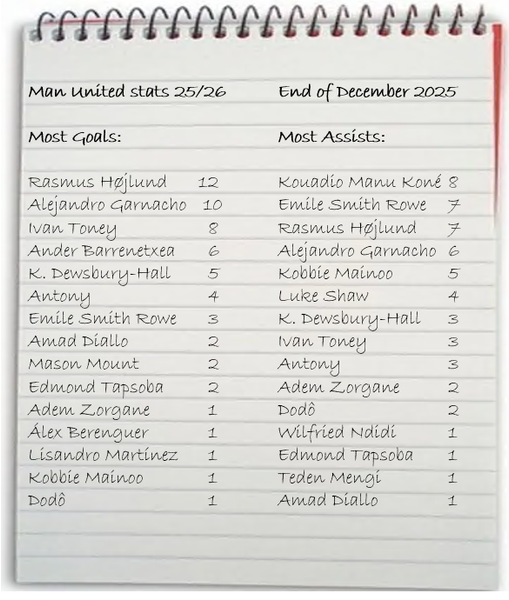 Man United stats 25/26 End of December 2025
Most Goals: Most Assists:
Rasmus Højlund 12 Kouadio Manu Koné 8
Alejandro Garnacho 10 Emile Smith Rowe 7
Ivan Toney 8 Rasmus Højlund 7
Ander Barrenetxea 6 Alejandro Garnacho 6
K. Dewsbury-Hall 5 Kobbie Mainoo 5
Antony 4 Luke Shaw 4
Emile Smith Rowe 3 K. Dewsbury-Hall 3
Amad Diallo 2 Ivan Toney 3
Mason Mount 2 Antony 3
Edmond Tapsoba 2 Adem Zorgane 2
Adem Zorgane 1 Dodô 2
Álex Berenguer 1 Wilfried Ndidi 1
Lisandro Martínez 1 Edmond Tapsoba 1
Kobbie Mainoo 1 Teden Mengi 1
Dodô 1 Amad Diallo 1